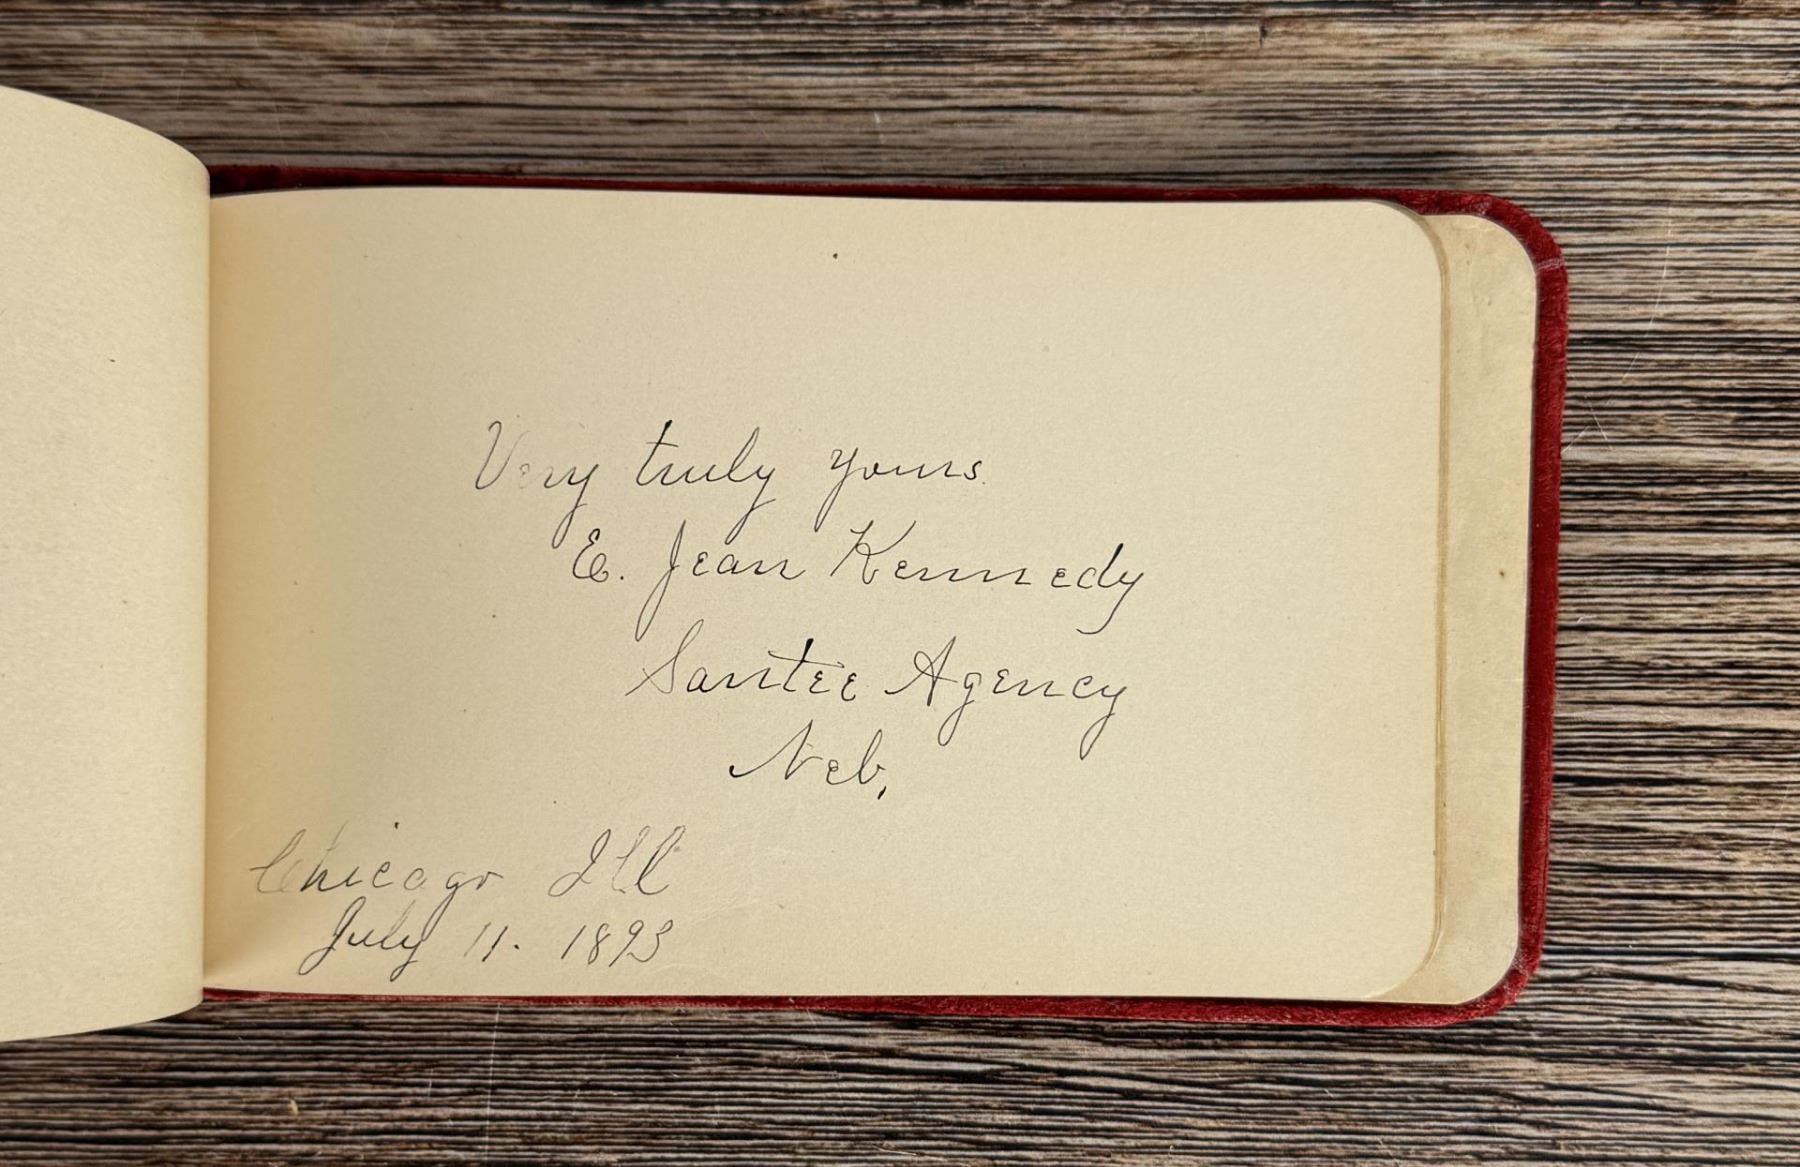 Very truly yours
E. Jean Kennedy
Santee Agency
Neb.
Chicago Ill
July 11. 1893